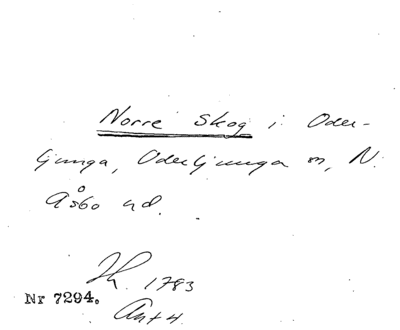 Norre Skog i Oder-
ljunga, Oderljunga sn, N.
Åsbo hd.
Jh. 1783
Nr 7294.
Akt 4